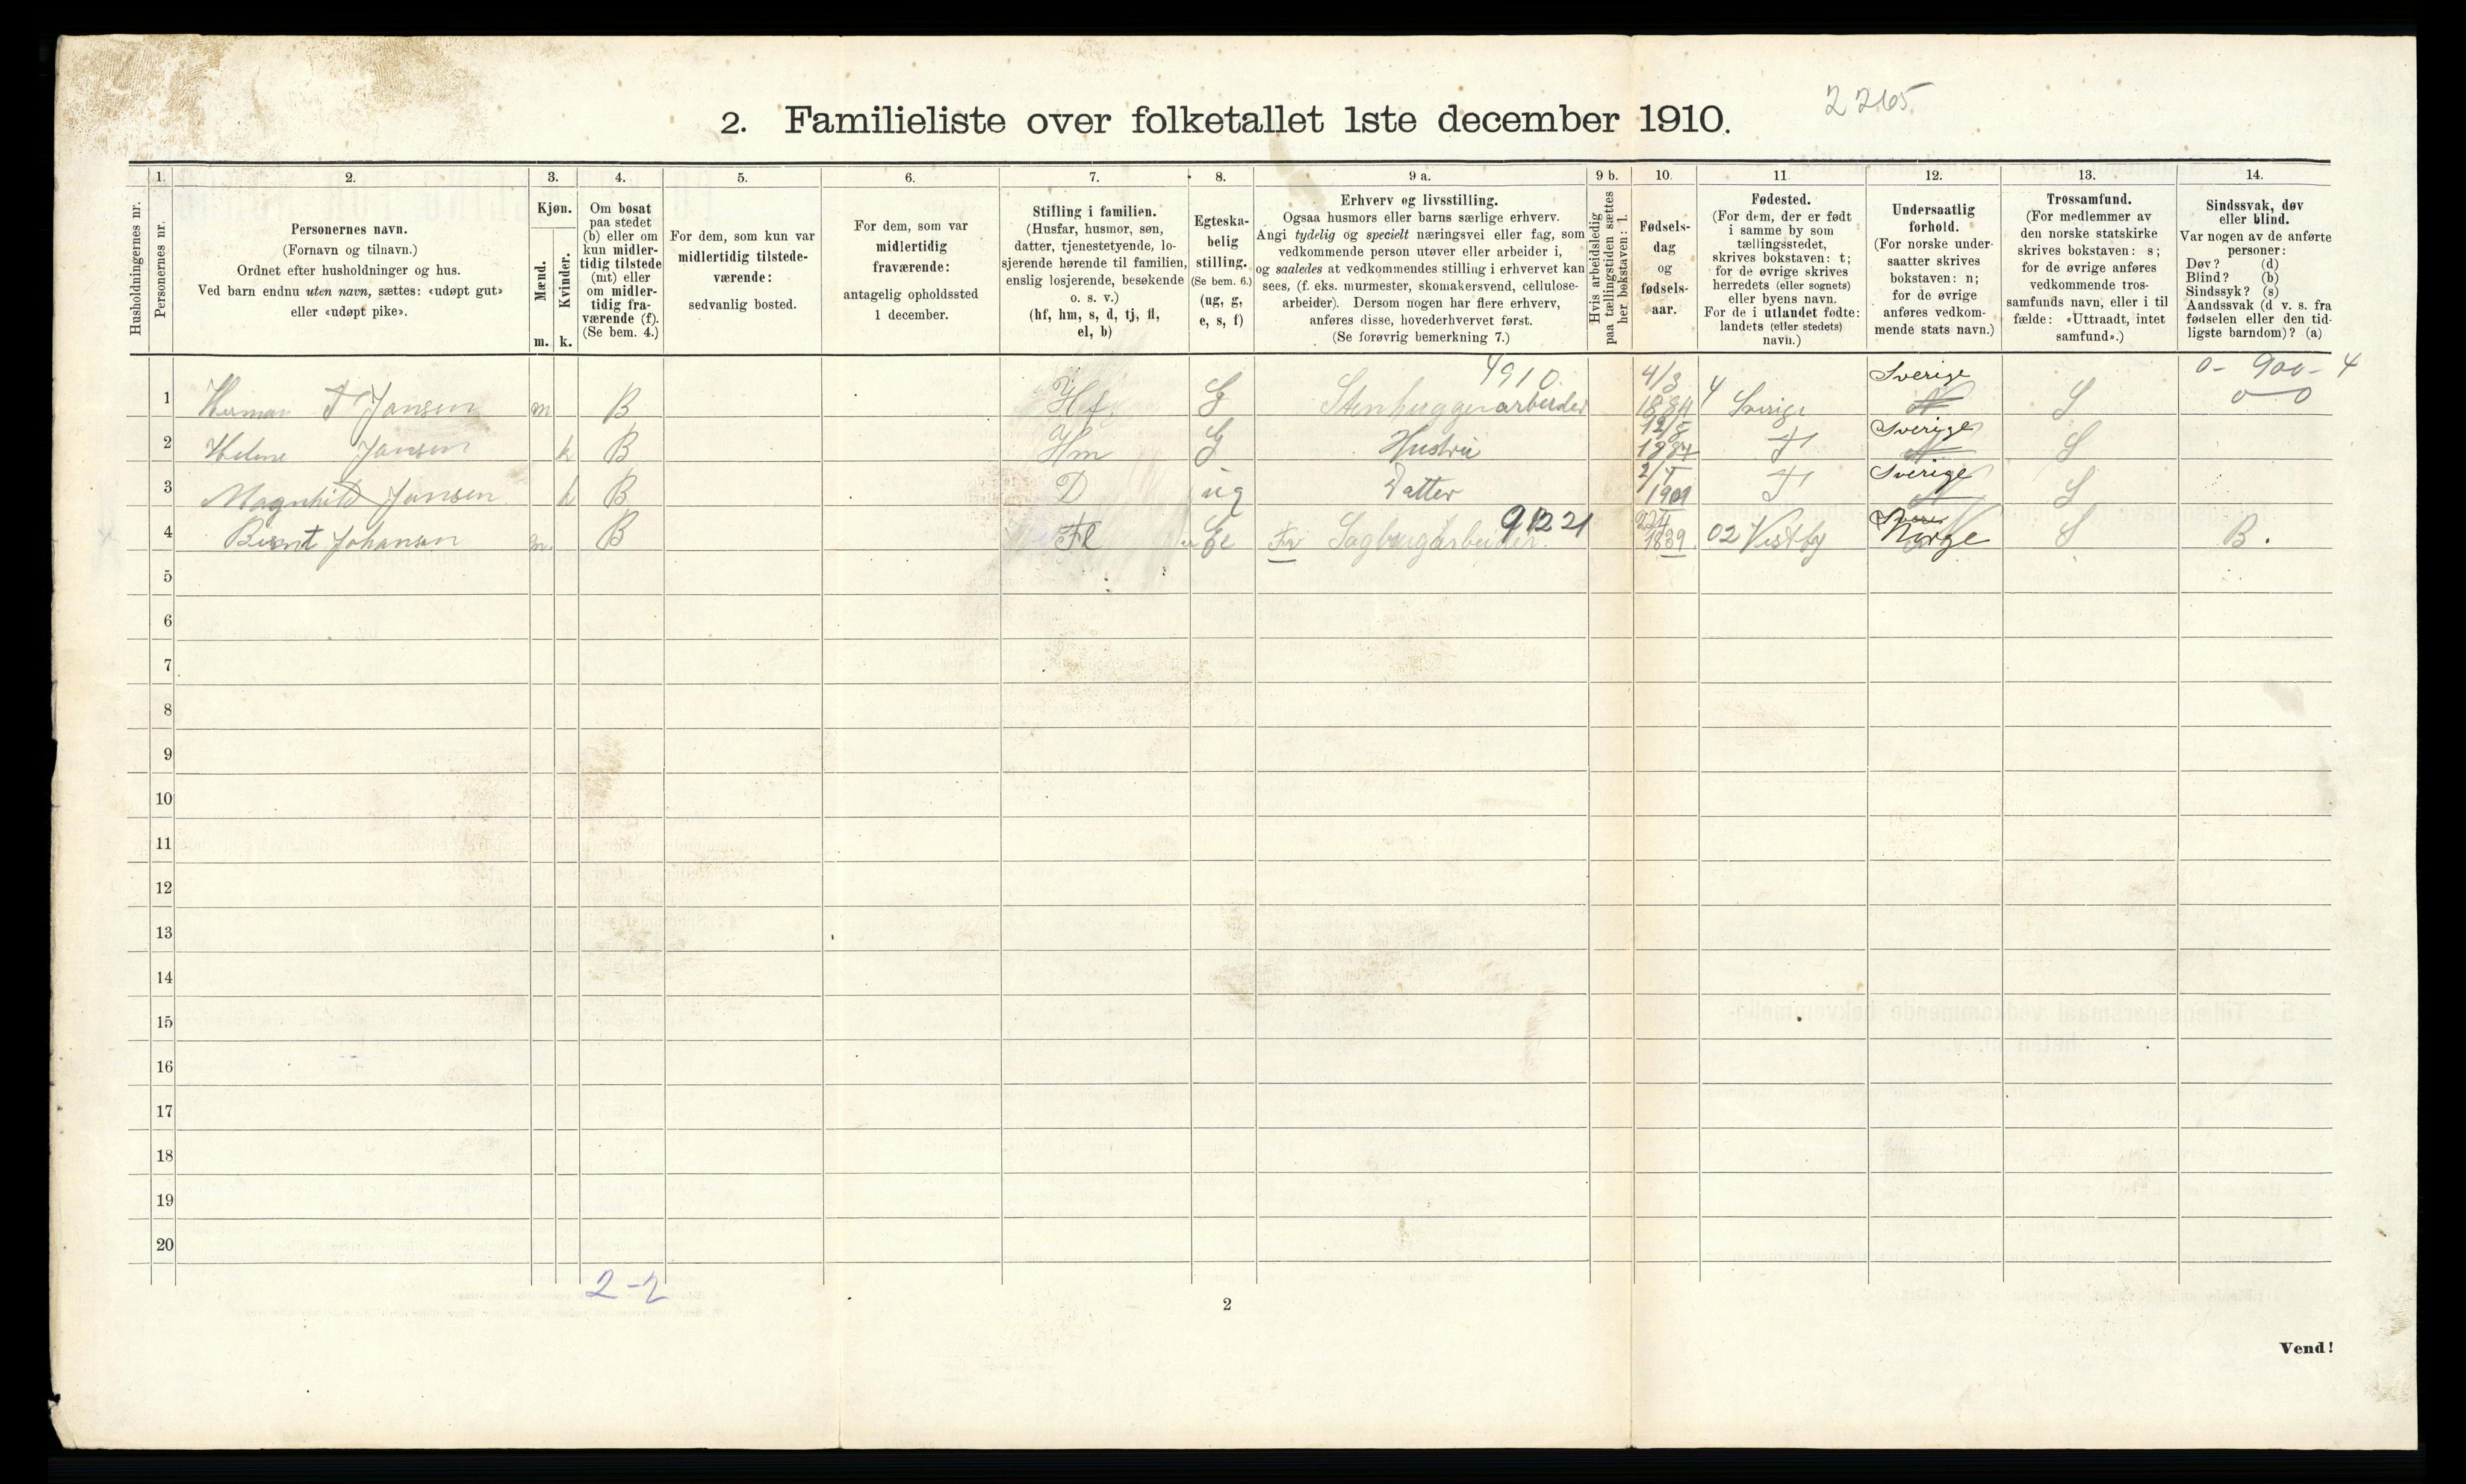 2265
2. Familieliste over folketallet 1ste december 1910.
Husholdningernes nr.
1.
Personernes nr.
2.
Personernes navn.
(Fornavn og tilnavn.)
Ordnet efter husholdninger og hus.
Ved barn endnu uten navn, sættes: «udøpt gut»
eller «udøpt pike».
3.
Kjøn.
Mænd.
Kvinder.
m. k.
4.
Om bosat
paa stedet
(b) eller om
kun midler-
tidig tilstede
(mt) eller
om midler-
tidig fra-
værende (f).
(Se bem. 4.)
5.
For dem, som kun var
midlertidig tilstede-
værende:
sedvanlig bosted.
6.
For dem, som var
midlertidig
fraværende:
antagelig opholdssted
1 december.
7.
Stilling i familien.
(Husfar, husmor, søn,
datter, tjenestetyende, lo-
sjerende hørende til familien,
enslig losjerende, besøkende
o. s. v.)
(hf, hm, s, d, tj, fl,
el, b)
8.
Egteska-
belig
stilling.
(Se bem. 6.)
(ug, g,
e, s, f)
9 a.
Erhverv og livsstilling.
Ogsaa husmors eller barns særlige erhverv.
Angi tydelig og specielt næringsvei eller fag, som
vedkommende person utøver eller arbeider i,
og saaledes at vedkommendes stilling i erhvervet kan
sees, (f. eks. murmester, skomakersvend, cellulose-
arbeider). Dersom nogen har flere erhverv,
anføres disse, hovederhvervet først.
(Se forøvrig bemerkning 7.)
9 b.
Hvis arbeidsledig
paa tællingstiden sættes
her bokstaven: l.
10.
Fødsels-
dag
og
fødsels-
aar.
11.
Fødested.
(For dem, der er født
i samme by som
tællingsstedet,
skrives bokstaven: t;
for de øvrige skrives
herredets (eller sognets)
eller byens navn.
For de i utlandet fødte:
landets (eller stedets)
navn.)
12.
Undersaatlig
forhold.
(For norske under-
saatter skrives
bokstaven: n;
for de øvrige
anføres vedkom-
mende stats navn.)
13.
Trossamfund.
(For medlemmer av
den norske statskirke
skrives bokstaven: s;
for de øvrige anføres
vedkommende tros-
samfunds navn, eller i til
fælde: «Uttraadt, intet
samfund».)
14.
Sindssvak, døv
eller blind.
Var nogen av de anførte
personer:
Døv? (d)
Blind? (b)
Sindssyk? (s)
Aandssvak (d v. s. fra
fødselen eller den tid-
ligste barndom)? (a)
4910. 4/3 Sverige 0- 900- 4
1 Herman Jansen m B Hf G Stenhuggerarbeider 1884 4 Sverige N S 0 0
12/5 Sverige
2 Helene Jansen k B Hm G Hustru 1887 N S
Sverige
3 Magnhild Jansen k B D ug Datter 1909 N S
91221
4 Bernt Johansen m. B Fl Ge Fv Sagbrugarbeider. 1839. 02 Vestby Norge S B.
5
6
7
8
9
10
11
12
13
14
15
16
17
18
19
20
2-2
2
Vend!